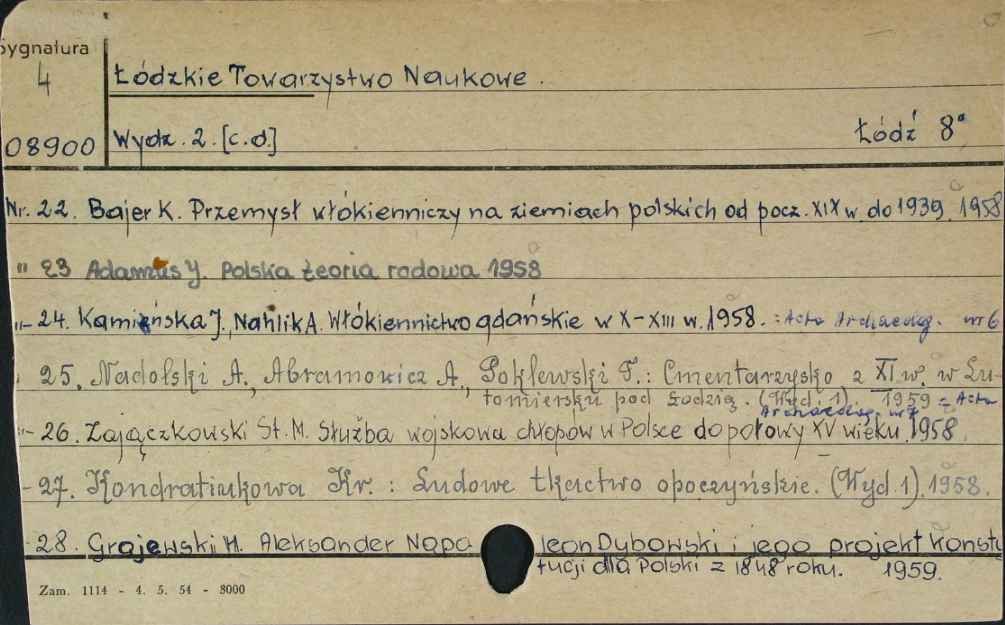 Sygnatura
4
Łódzkie Towarzystwo Naukowe.
08900 Wydz. 2. [c.d.] Łódź 8°
Nr. 22. Bajer K. Przemysł włókienniczy na ziemiach polskich od pocz. XIX w. do 1939. 1958
" 23 Adamus J. Polska teoria rodowa 1958
"- 24. Kamieńska J., Nahlik A. Włókiennictwo gdańskie w X-XIII w. 1958. = Acta Archaeolog. nr 6
25. Nadolski A., Abramowicz A., Poklewski T.: Cmentarzysko z XI w. w Lu-
tomiersku pod Łodzią. (Wyd. 1). 1959 = Acta
Archaeolog. nr 7
"- 26. Zajączkowski St. M. Służba wojskowa chłopów w Polsce do połowy XV wieku. 1958.
- 27. Kondratiukowa Kr. : Ludowe tkactwo opoczyńskie. (Wyd. 1). 1958.
- 28. Grajewski H. Aleksander Napoleon Dybowski i jego projekt Konsty
tucji dla Polski z 1848 roku. 1959.
Zam. 1114 - 4. 5. 54 - 8000